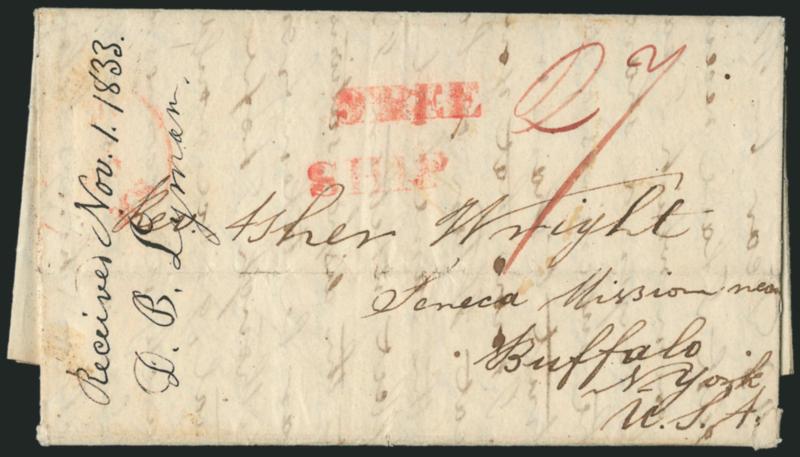 Received Nov. 1. 1833.
D. B. Lyman.
FREE
SHIP
27
Rev Asher Wright
Seneca Mission near
Buffalo
N. York
U. S. A.